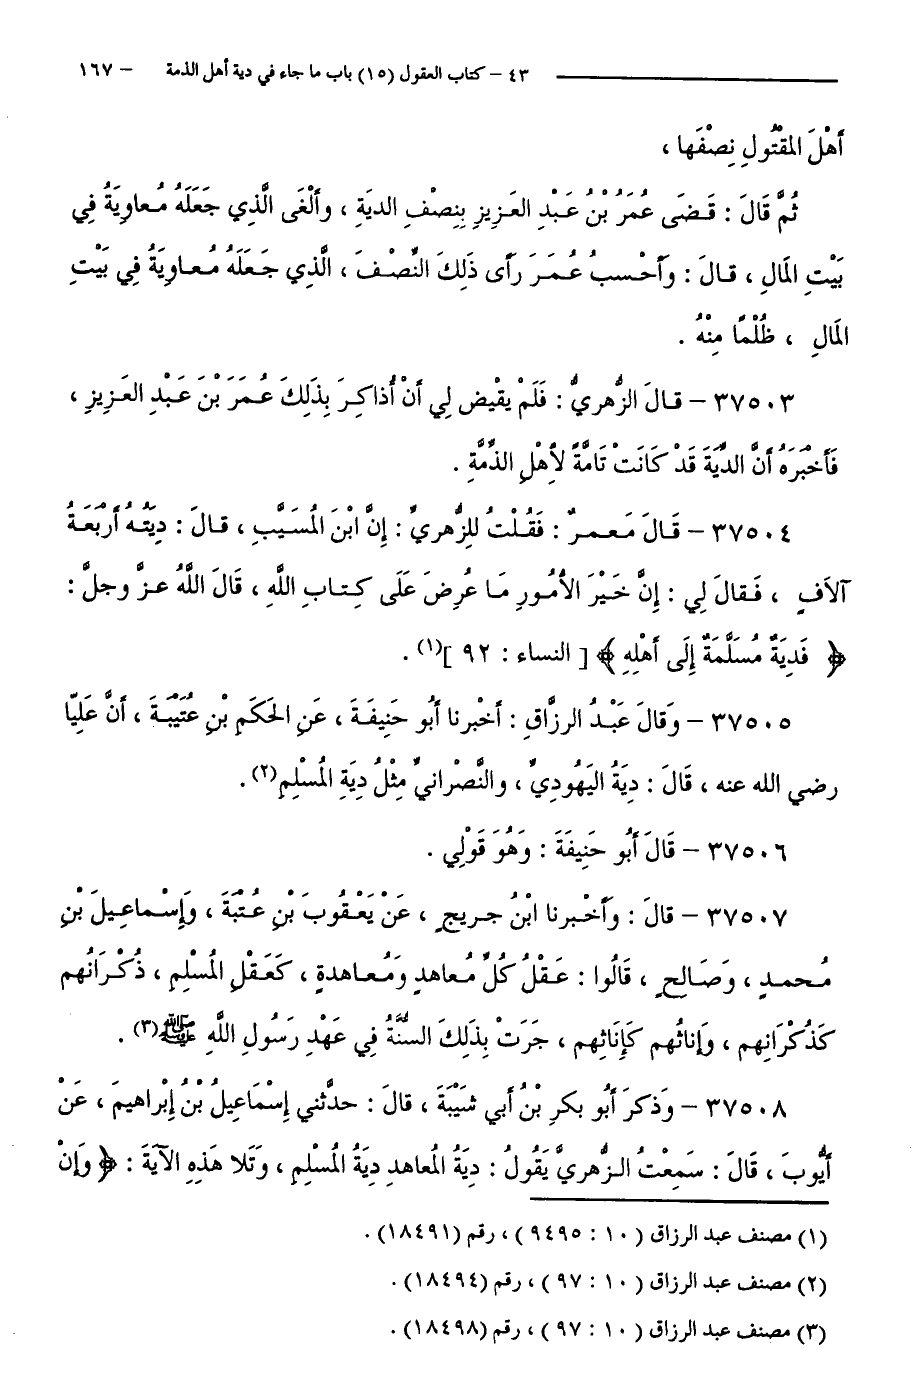 ٤٣ – كتاب العقول (١٥) باب ما جاء في دية أهل الذمة – ١٦٧
أَهْلَ المَقْتُولِ نِصْفَها ،
ثُمَّ قَالَ : قَضَى عُمَرُ بْنُ عَبْدِ العَزِيزِ بِنِصْفِ الديَةِ ، وأَلْغَى الَّذِي جَعَلَهُ مُعاوِيَةُ فِي
بَيْتِ المَالِ ، قالَ : وأَحْسبُ عُمَرَ رَأى ذَلِكَ النِّصْفَ ، الَّذِي جَعَلَهُ مُعاوِيَةُ فِي بَيْتِ
المَالِ ، ظُلْمًا مِنْهُ .
٣٧٥٠٣ – قالَ الزُّهريُّ : فَلَمْ يقْيض لِي أَنْ أُذاكِرَ بِذَلِكَ عُمَرَ بْنَ عَبْدِ العَزِيزِ ،
فَأخْبَرَهُ أنَّ الدِّيَةَ قَدْ كَانَتْ تَامَّةً لأِهْلِ الذِّمَّةِ .
٣٧٥٠٤ – قَالَ مَعمرٌ : فَقُلْتُ للِزُّهريِّ : إِنَّ ابْنَ المُسَيَّبِ ، قالَ : ديَتُهُ أرْبَعَةُ
آلاَفٍ ، فَقالَ لِي : إِنَّ خَيْرَ الأُمُورِ مَا عُرِضَ عَلَى كِتابِ اللَّهِ ، قَالَ اللَّهُ عزَّ وجلَّ :
﴿ فَديَةٌ مُسَلَّمَةٌ إِلَى أَهْلِهِ ﴾ [ النساء : ٩٢ ](١) .
٣٧٥٠٥ – وَقالَ عَبْدُ الرزَّاقِ : أخْبرنا أبُو حَنِيفَةَ ، عَنِ الحَكَمِ بْنِ عُتَيْبَةَ ، أنَّ عَلِيّا
رضي الله عنه ، قَالَ : ديَةُ اليَهُوديِّ ، والنَّصْرانيِّ مِثْلُ دِيَةِ المُسْلِمِ(٢).
٣٧٥٠٦ – قَالَ أبُو حَنِيفَةَ : وَهُوَ قَوْلِي .
٣٧٥٠٧ – قالَ : وأخْبرنا ابْنُ جريجٍ ، عَنْ يَعْقُوبَ بْنِ عُتْبَةَ ، وَإِسْماعِيلَ بْنِ
مُحمدٍ ، وَصَالِحٍ ، قَالُوا : عَقْلُ كُلِّ مُعاهدٍ وَمُعاهدةٍ ، كَعَقْلِ المُسْلِمِ ، ذُكْرَانُهم
كَذُكْرَانِهم ، وإناثُهم كَإِنَاثِهم ، جَرَتْ بِذَلِكَ السُّنَّةُ فِي عَهْدِ رَسُولِ اللَّهِ ﷺ(٣) .
٣٧٥٠٨ – وَذكرَ أبُو بكرِ بْنُ أبي شَيْبَةَ ، قالَ : حدَّثني إِسْمَاعِيلُ بْنُ إِبْراهيمَ ، عَنْ
أيُّوبَ ، قَالَ : سَمِعْتُ الزُّهريَّ يَقُولُ : ديَةُ المُعاهدِ ديَةُ المُسْلمِ ، وَتَلا هَذِهِ الآيَةَ : ﴿ وإنْ
(١) مصنف عبد الرزاق ( ١٠ : ٩٤٩٥ ) ، رقم (١٨٤٩١).
(٢) مصنف عبد الرزاق ( ١٠ : ٩٧ ) ، رقم (١٨٤٩٤) .
(٣) مصنف عبد الرزاق ( ١٠ : ٩٧ ) ، رقم (١٨٤٩٨) .